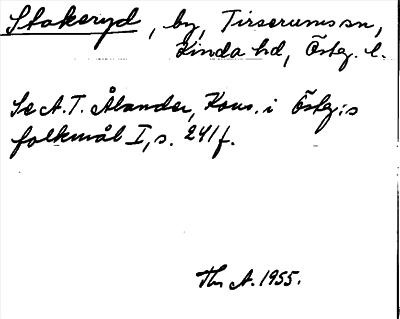 Stakeryd, by, Tirserums sn,
Kinda hd, Östg. l.
Se A.T. Ålander, Kons. i Östg:s
folkmål I, s. 241f.
Th A. 1955.